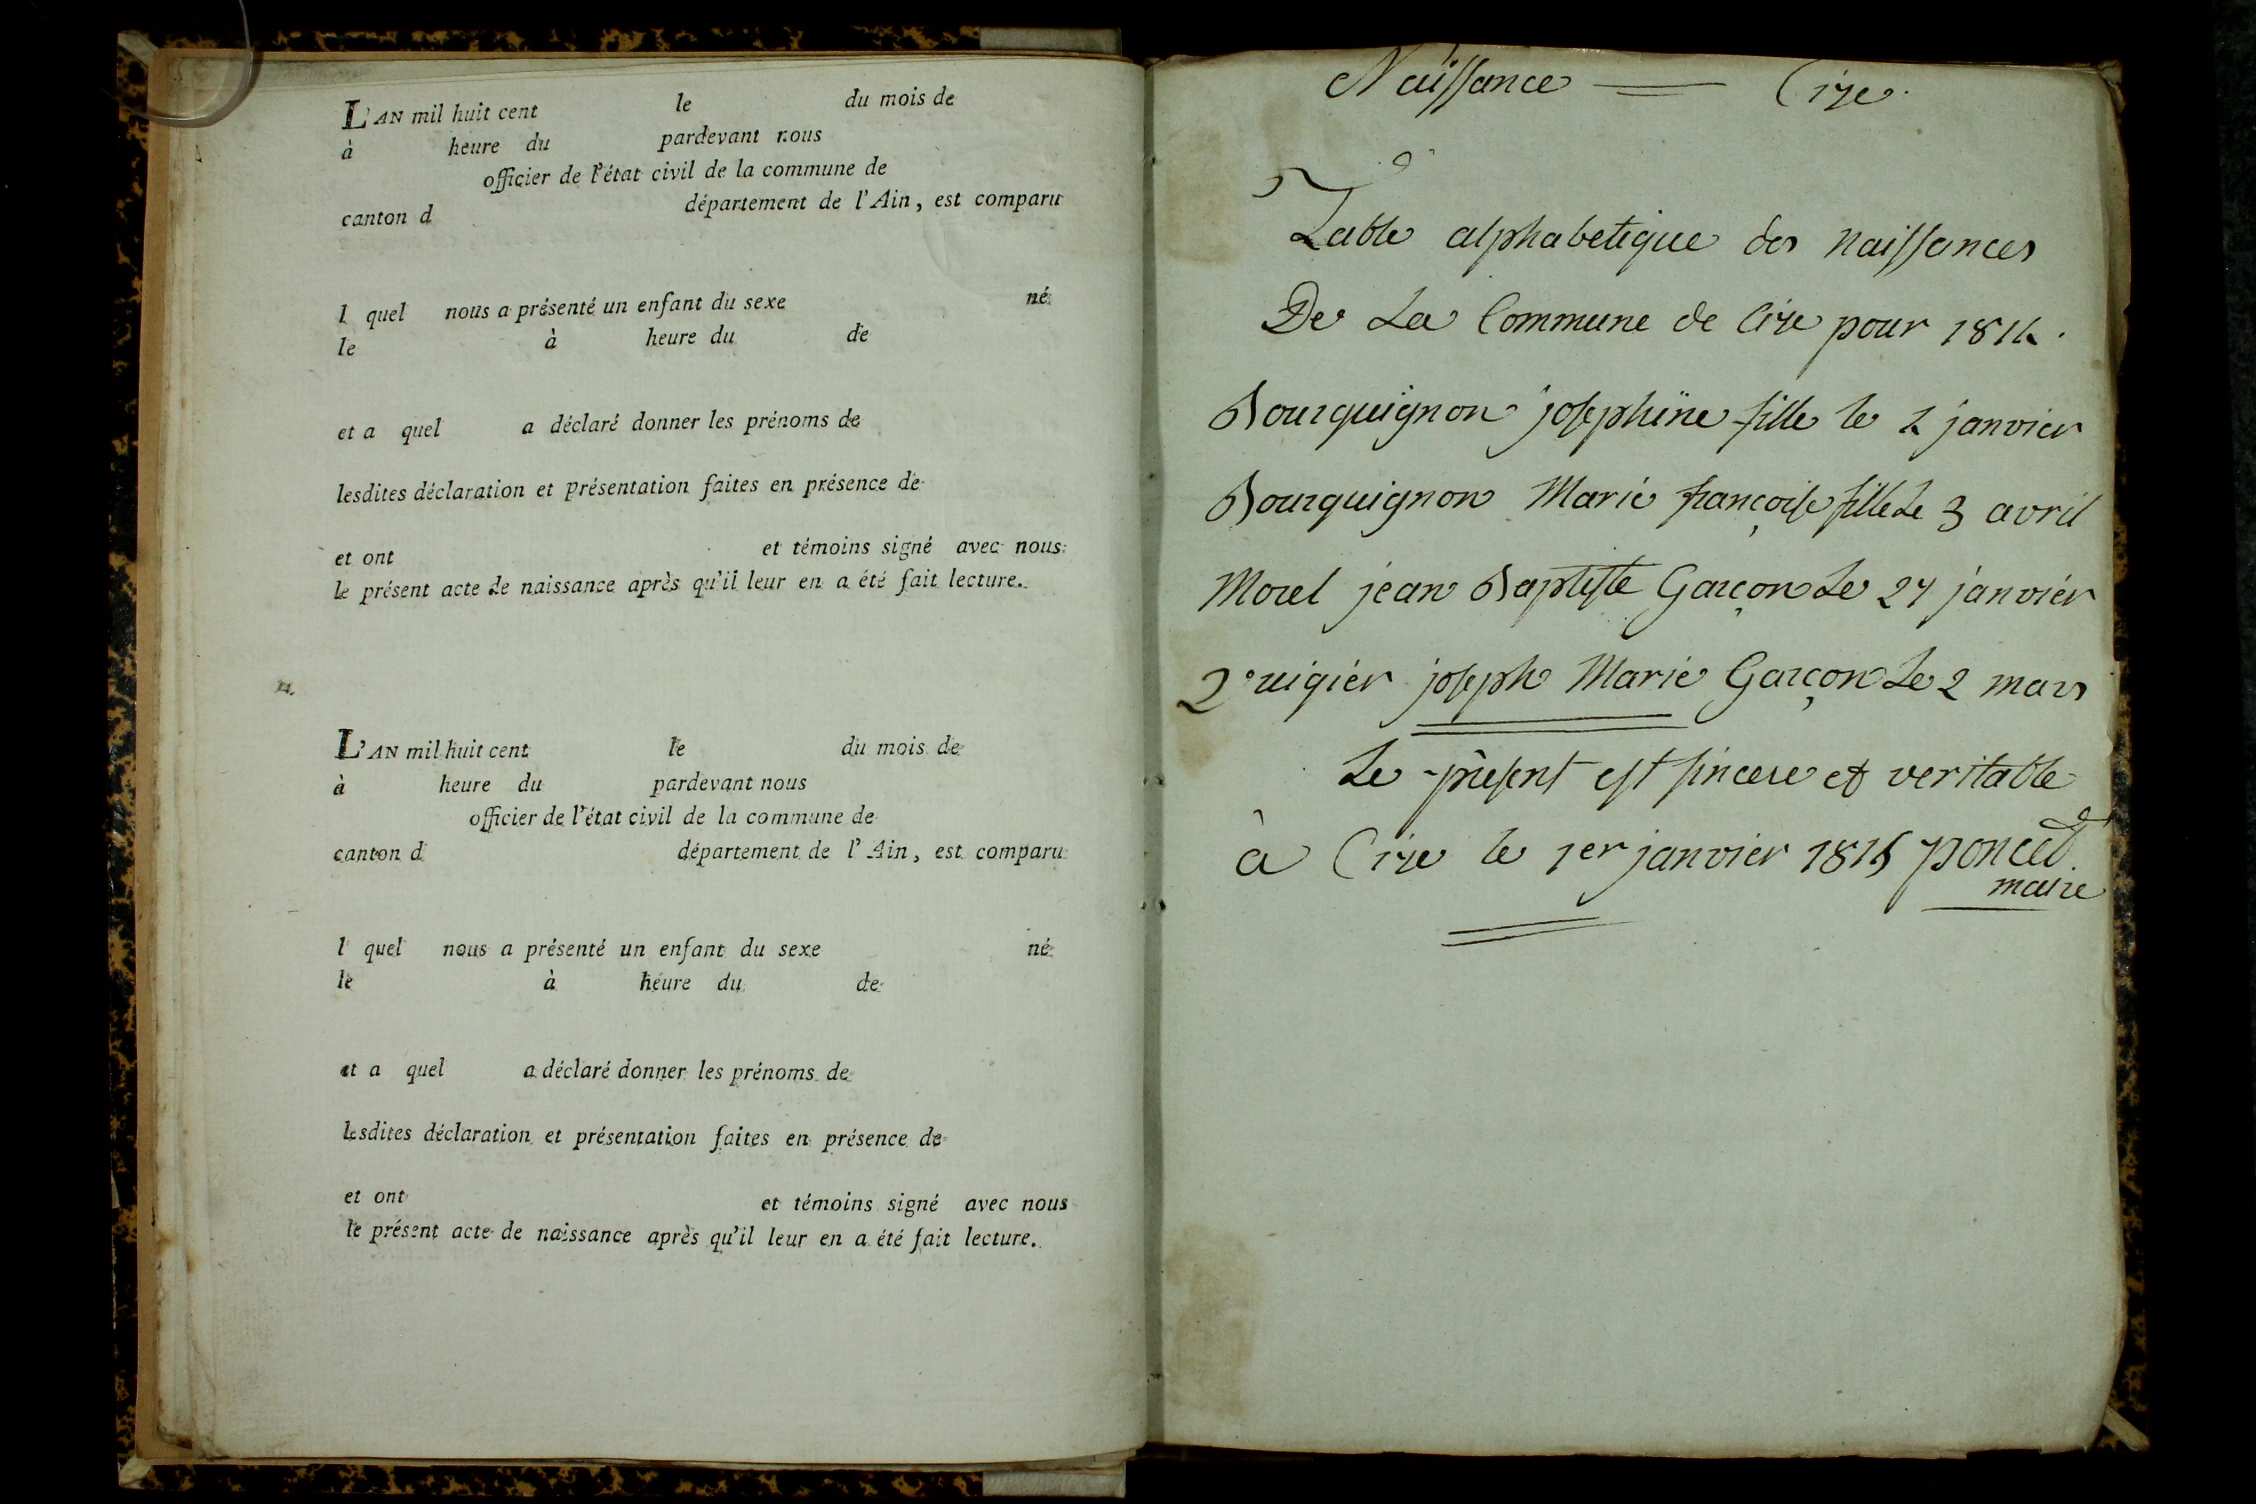 L'AN mil huit cent le du mois de
à heure du pardevant nous
officier de l'état civil de la commune de
canton d département de l'Ain, est comparu
l quel nous a présenté un enfant du sexe né
le à heure du de
et a quel a déclaré donner les prénoms de
lesdites déclaration et présentation faites en présence de
et ont et témoins signé avec nous
le présent acte de naissance après qu'il leur en a été fait lecture.
L'AN mil huit cent le du mois de
à heure du pardevant nous
officier de l'état civil de la commune de
canton d département de l'Ain, est comparu
l quel nous a présenté un enfant du sexe né
le à heure du de
et a quel a déclaré donner les prénoms de
lesdites déclaration et présentation faites en présence de
et ont et témoins signé avec nous
le présent acte de naissance après qu'il leur en a été fait lecture.
Naissance Cize
Table alphabetique des naissances
De La Commune de Cize pour 1814.
Bourquignon josephine fille le janvier
Bourquignon Marie françoise fille Le 3 avril
Morel jean Baptiste Garçon Le 27 janvier
joseph Marie Garçon Le 2 mars
Le present est sincere et veritable
à Cize le 1er janvier 1815 poncet
maire